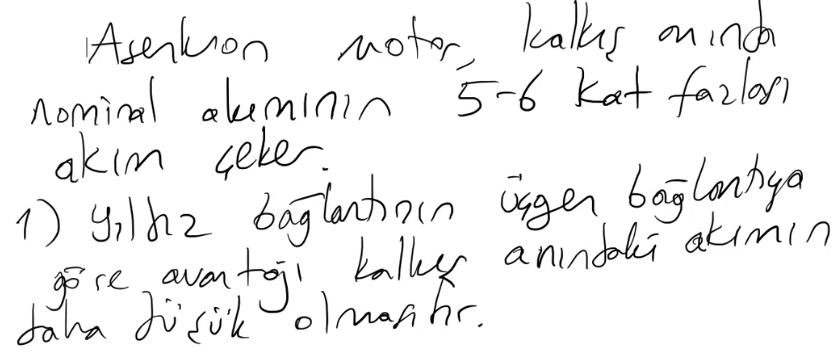 Asenkron motor, kalkış anında
nominal akımının 5-6 kat fazlası
akım çeker.
1) Yıldız bağlantının üçgen bağlantıya
göre avantajı kalkış anındaki akımın
daha düşük olmasıdır.